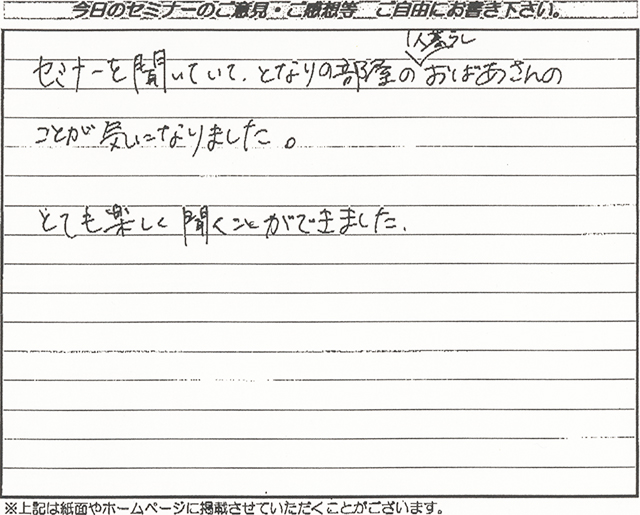 今日のセミナーのご意見・ご感想等　ご自由にお書き下さい。
1人暮らし
セミナーを聞いていて、となりの部屋のおばあさんの
ことが気になりました。
とても楽しく聞くことができました。
※上記は紙面やホームページに掲載させていただくことがございます。